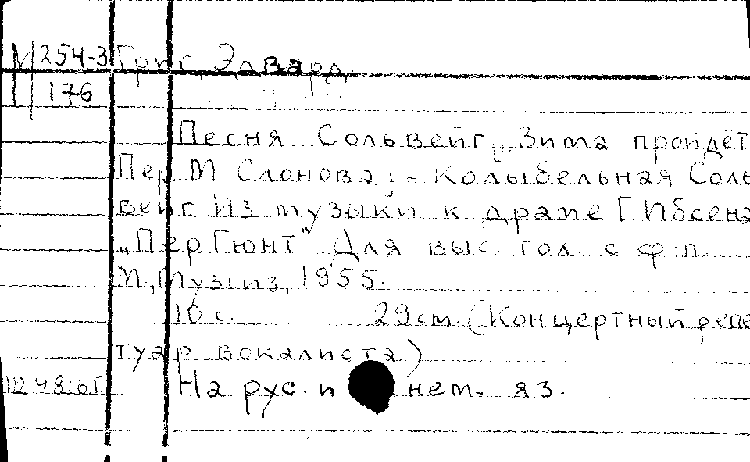 М 254-3 Григ, Эдвард
176
Песня Сольвейг „Зима пройдёт
Пер М Слонова; - Колыбельная Соль
вейг. Из музыки к драме Г. Ибсена
„Пер Гюнт" Для выс. гол. с ф.-п.
М., Музгиз, 1955.
10 с. 29 см. (Концертный репе
туар вокалиста)
На рус. и нем. яз.